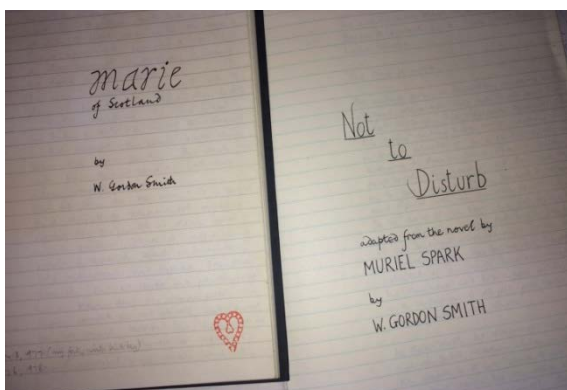 marie
of Scotland
by
W. Gordon Smith
Not
to
Disturb
adapted from the novel by
MURIEL SPARK
by
W. GORDON SMITH